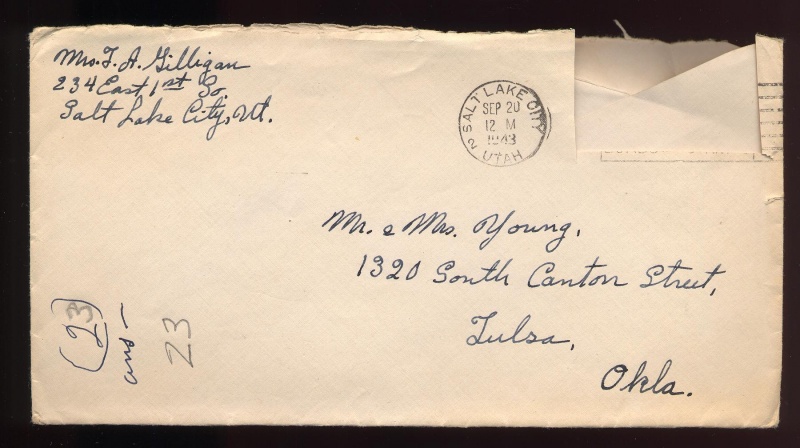 Mrs. T. A. Gilligan
234 East 1st So.
Salt Lake City, Ut.
SALT LAKE CITY
2
SEP 20
12 M
1943
UTAH
Mr. & Mrs. Young,
1320 South Canton Street,
Tulsa,
Okla.
(23)
ans –
23